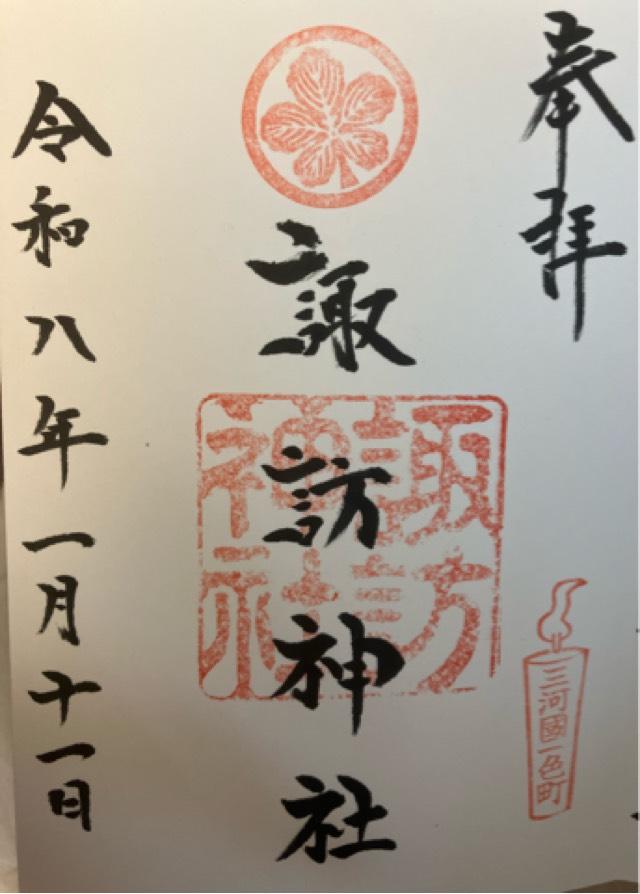 奉拝
三河國一色町
諏訪神社
諏訪神社
令和八年一月十一日